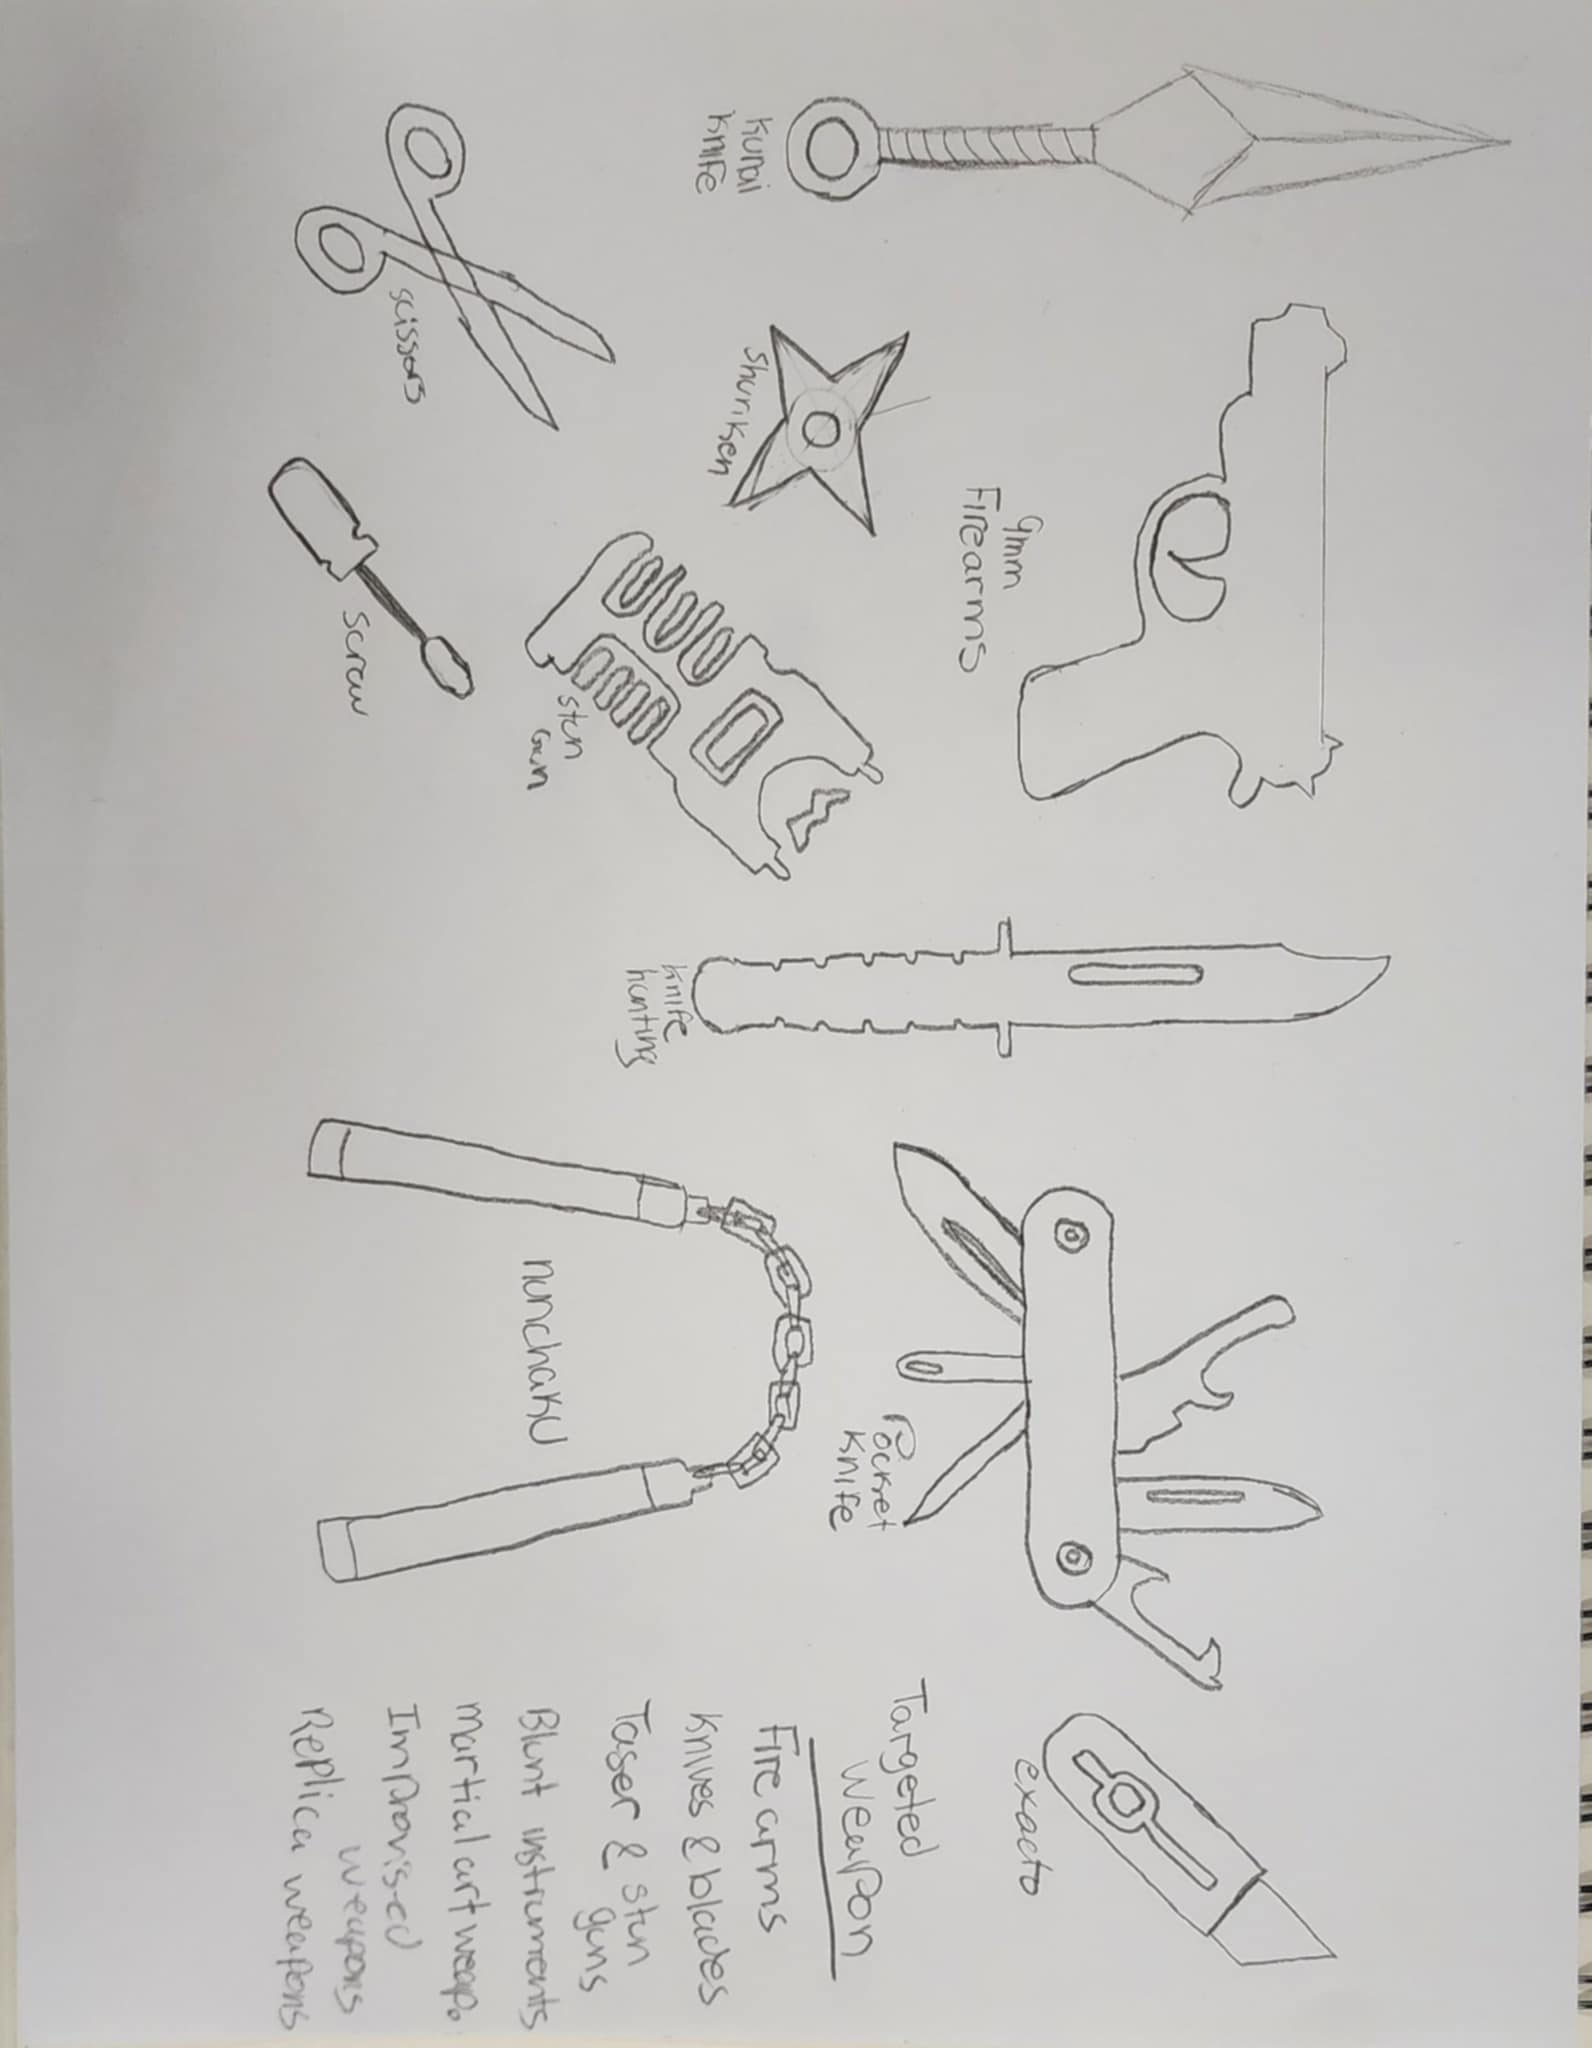 Kunai
Knife
9mm
Firearms
Shuriken
scissors
screw
stun
Gun
Knife
hunting
Pocket
Knife
nunchaku
exacto
Targeted
weapon
Fire arms
Knives & blades
Taser & stun
guns
Blunt instruments
martial art weap.
Improvised
weapons
Replica weapons